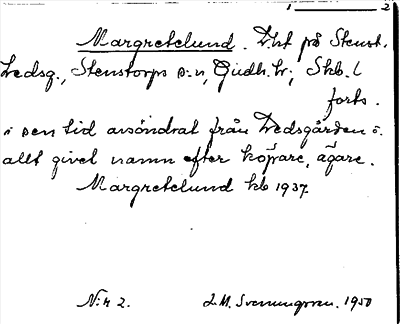 1 2
Margretelund. Lht på Stenst.
Ledsg., Stenstorps s:n, Gudh. hr; Skb. l
forts.
i sen tid avsöndrat från Ledsgården o.
allt givet namn efter köpare, ägare.
Margretelund kb 1937
N:r 2. L.M. Svenungsson. 1950